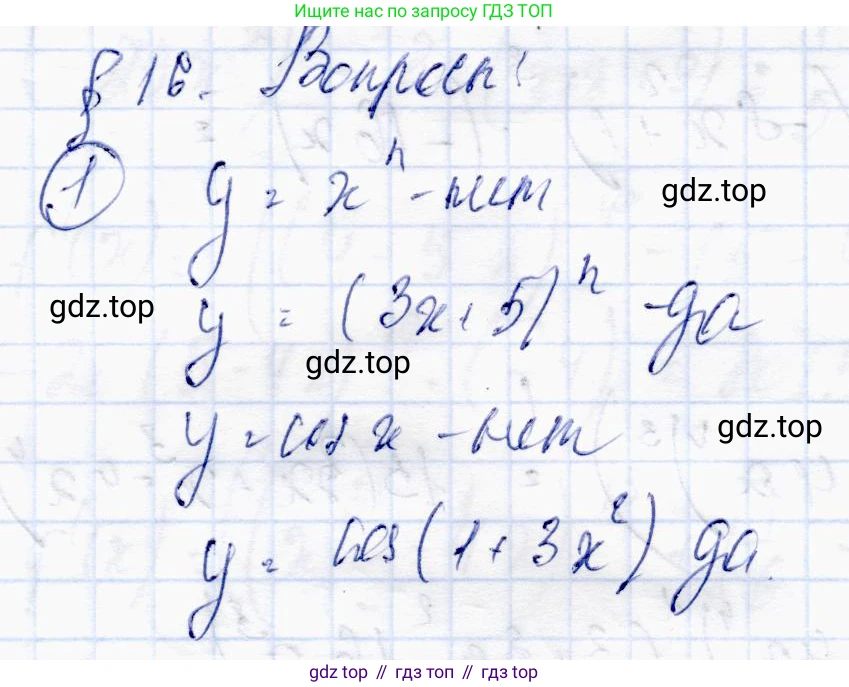 Ищите нас по запросу ГДЗ ТОП
§ 16. Вопросы:
1 y = xⁿ - нет
gdz.top
gdz.top
y = (3x + 5)ⁿ - да
gdz.top
y = cos x - нет
gdz.top
y = cos(1 + 3x²) да.
gdz top // гдз топ // gdz top